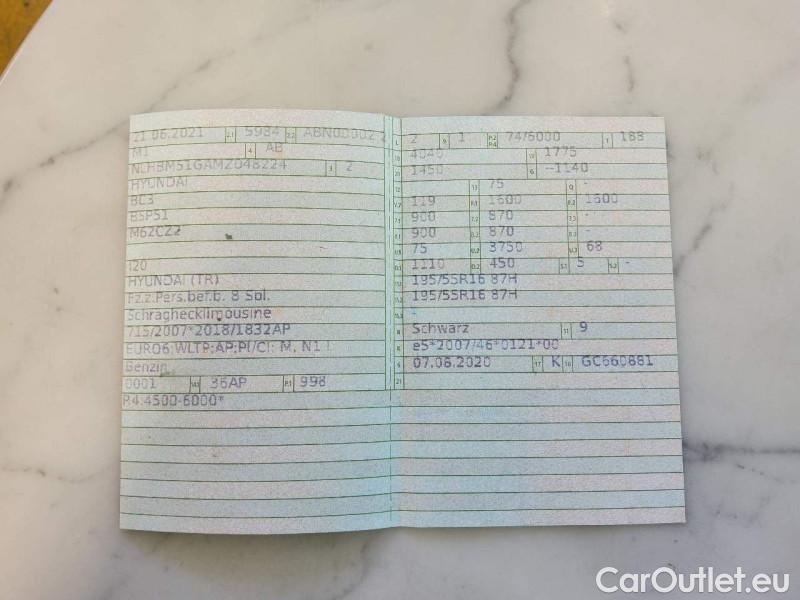 21.06.2021 2.1 5984 2.2 ABN00002 2
M1 4 AB
NLHBM51GAMZ048224 3 2
HYUNDAI
BC3
B5P51
M62CZ2
I20
HYUNDAI (TR)
Fz.z.Pers.bef.b. 8 Spl.
Schräghecklimousine
715/2007*2018/1832AP
EURO6;WLTP;AP;PI/CI; M, N1 I
Benzin
0001 V.9 36AP P.1 998
P.4:4500-6000*
L 2 9 1 P.2 P.4 74/6000 T 188
18 4040 19 1775
20 1450- G --1140
12 - 13 75 Q -
V.7 119 F.1 1600 F.2 1600
7.1 900 7.2 870 7.3 -
8.1 900 8.2 870 8.3 -
U.1 75 U.2 3750 U.3 68
O.1 1110 O.2 450 S.1 5 S.2 -
15.1 195/55R16 87H
15.2 195/55R16 87H
15.3 -
R Schwarz 11 9
K e5*2007/46*0121*00
6 07.08.2020 17 K 16 GC660881
21
CarOutlet.eu